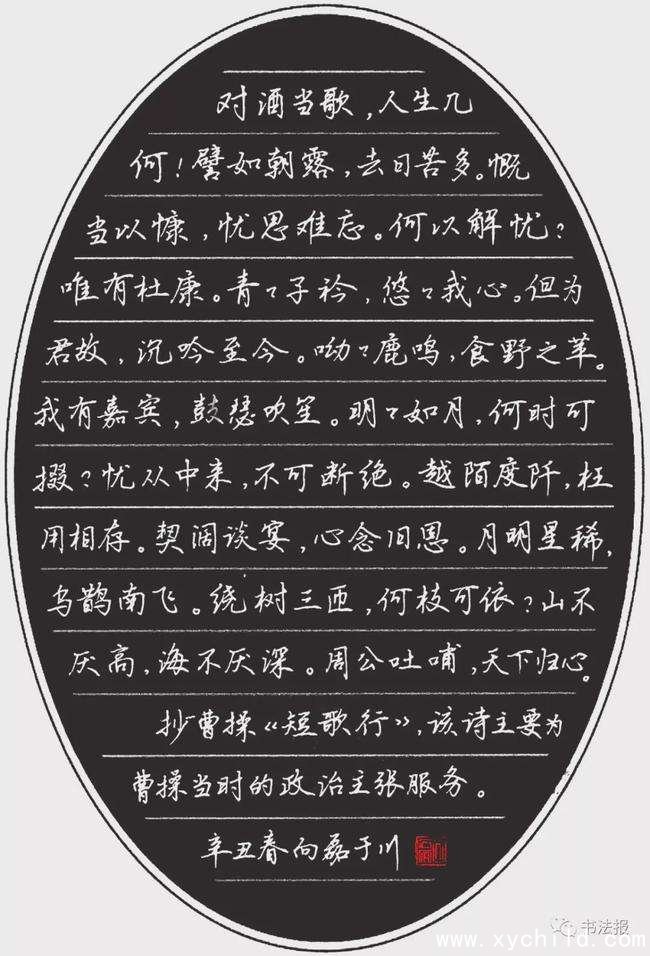 对酒当歌，人生几
何！譬如朝露，去日苦多。慨
当以慷，忧思难忘。何以解忧？
唯有杜康。青々子衿，悠々我心。但为
君故，沉吟至今。呦々鹿鸣，食野之苹。
我有嘉宾，鼓瑟吹笙。明々如月，何时可
掇？忧从中来，不可断绝。越陌度阡，枉
用相存。契阔谈宴，心念旧恩。月明星稀，
乌鹊南飞。绕树三匝，何枝可依？山不
厌高，海不厌深。周公吐哺，天下归心。
抄曹操《短歌行》，该诗主要为
曹操当时的政治主张服务。
辛丑春向磊于川
书法报
www.xychild.com